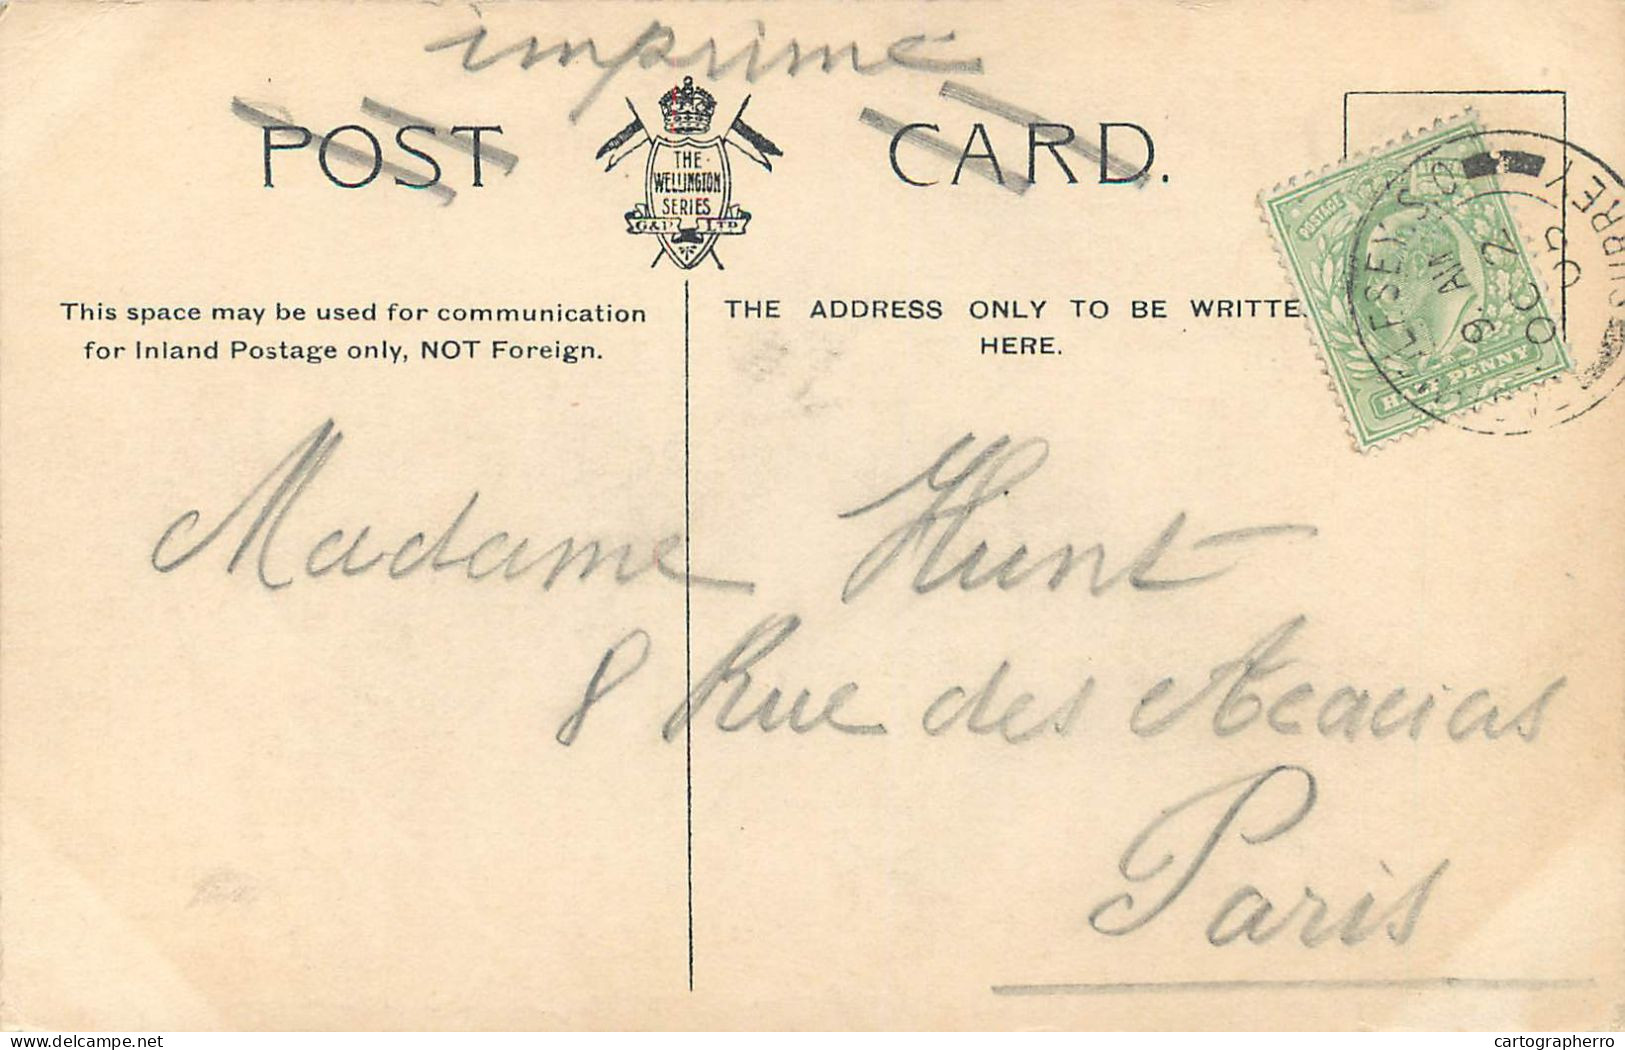 imprimé
POST CARD.
THE
WELLINGTON
SERIES
G&P LTD
This space may be used for communication
for Inland Postage only, NOT Foreign.
THE ADDRESS ONLY TO BE WRITTE
HERE.
POSTAGE
HALF PENNY
SURREY
OC 2
05
Madame Hunt
8 Rue des Acacias
Paris
cartographerro
delcampe.net